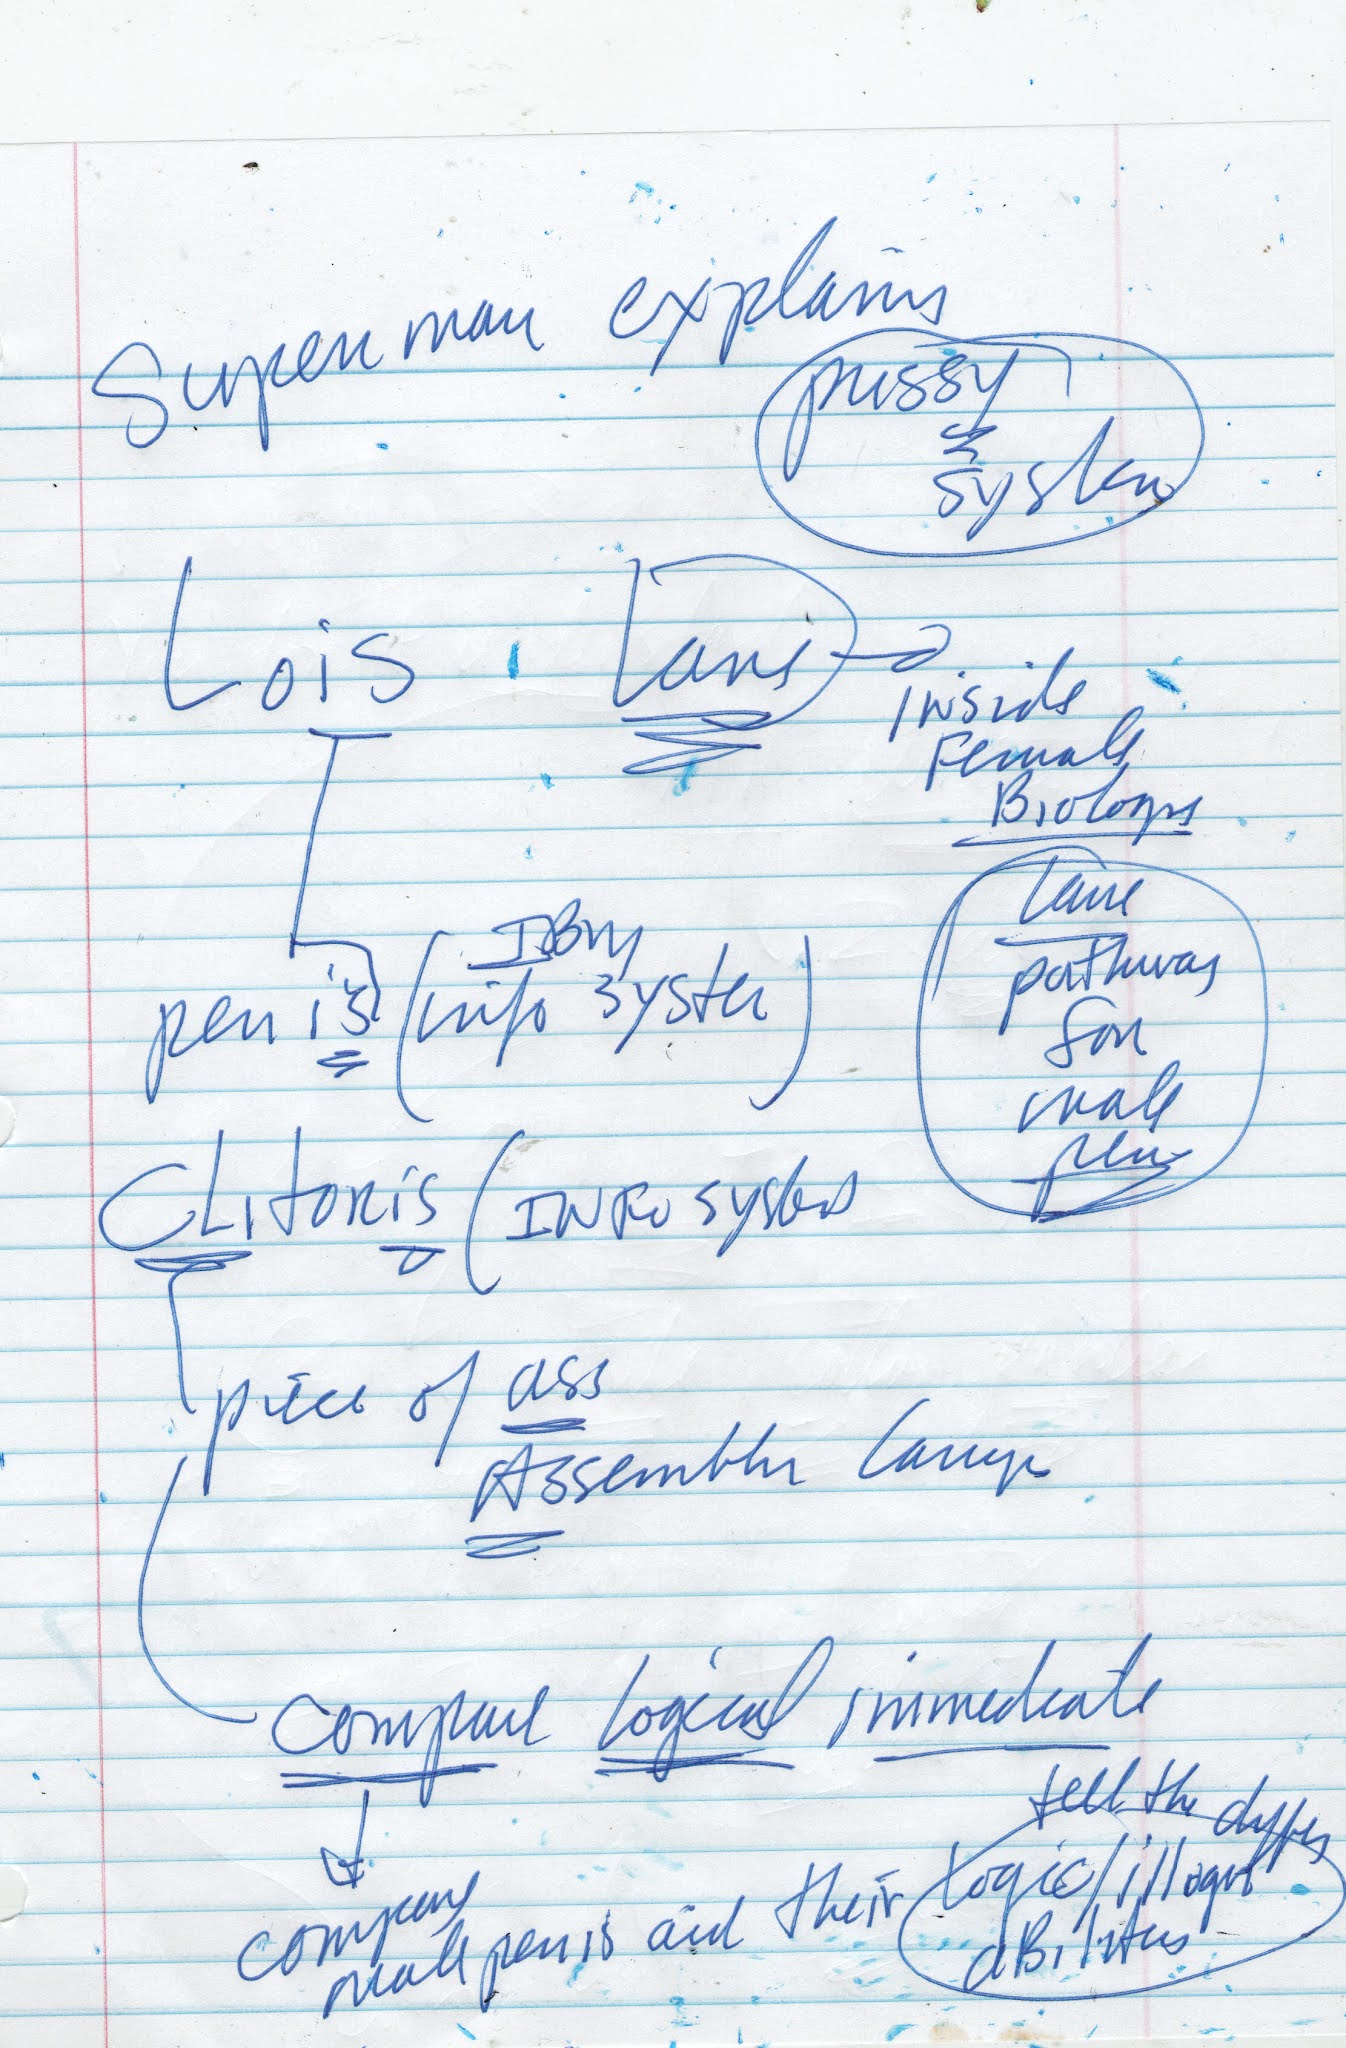 Superman explains
pussy
system
Lois Lane
Inside
Female
Biology
Lane
pathway
for
male
penis
IBM
penis (info system)
CLitoris (INFO system
piece of ass
Assembler Langu
compare logical immediate
tell the
compare
male penis and their logic/illogic
aBilities